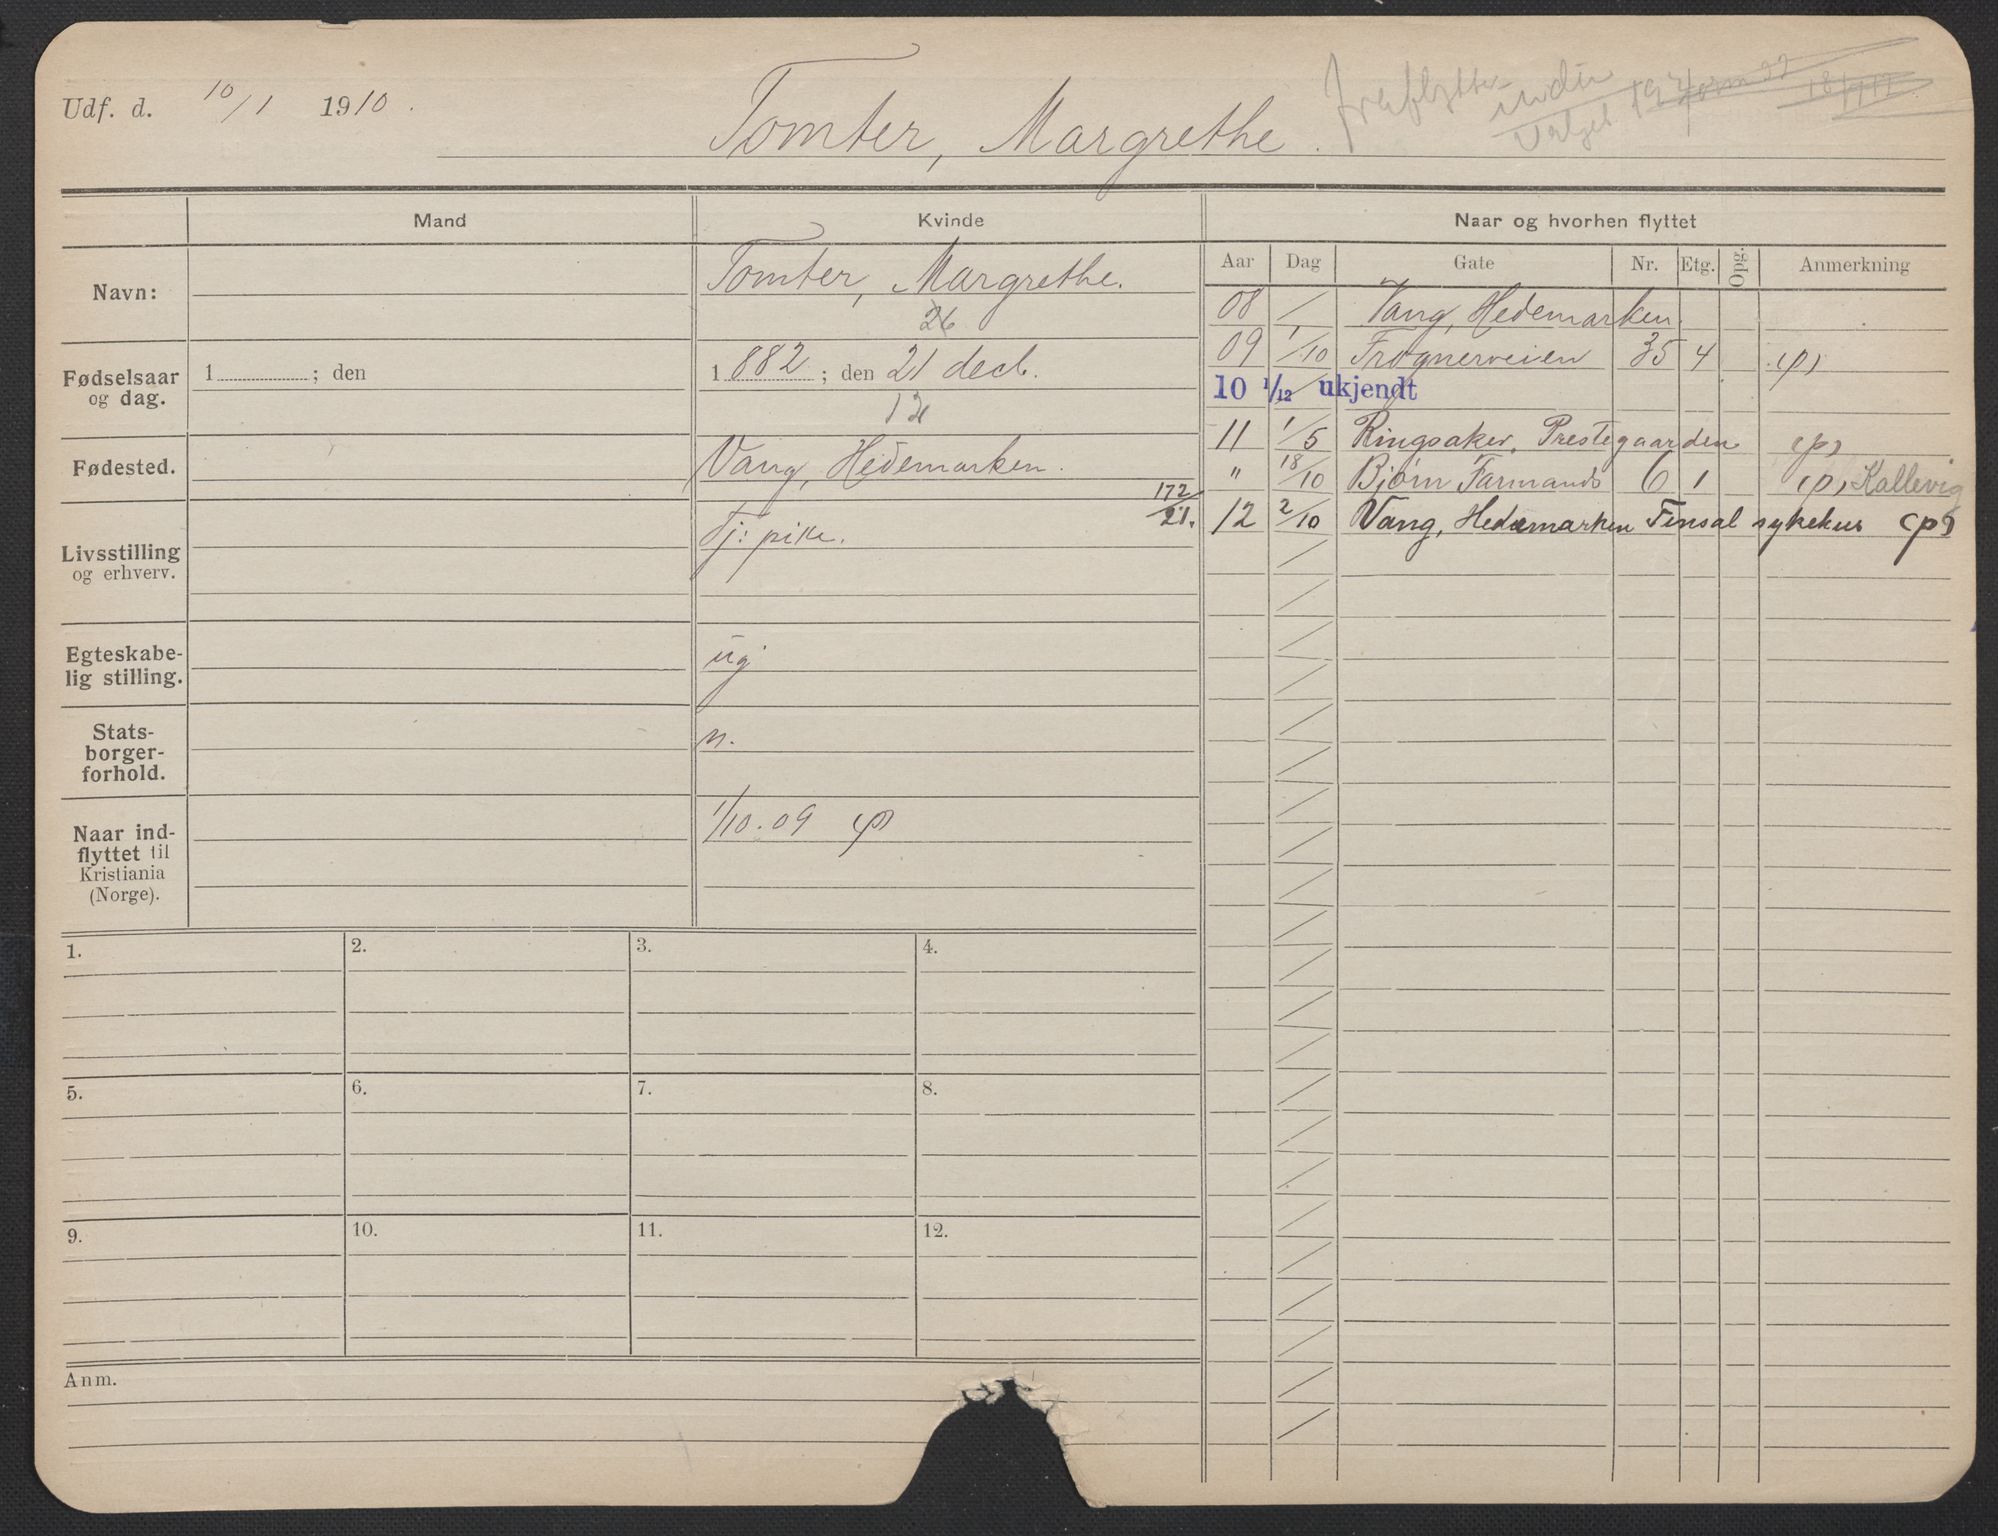 Udf. d. 10/1 1910.
Tomter, Margrethe.
Mand
Kvinde
Naar og hvorhen flyttet
Navn:
Tomter, Margrethe.
26
Fødselsaar og dag.
1 ; den
1882 ; den 21 decb.
12
Fødested.
Vang, Hedemarken.
172/21.
Livsstilling og erhverv.
Tj: pike.
Egteskabe-
lig stilling.
ug
Stats-
borger-
forhold.
n.
Naar ind-
flyttet til
Kristiania
(Norge).
1/10.09 (p)
Aar Dag Gate Nr. Etg. Opg. Anmerkning
08 / Vang, Hedemarken.
09 1/10 Frognerveien 35 4 (p)
10 1/12 ukjendt
11 1/5 Ringsaker, Prestegaarden (p)
" 18/10 Bjørn Farmands 6 1 (p) Kallevig
12 2/10 Vang, Hedemarken Finsal sykehus (p)
1. 2. 3. 4.
5. 6. 7. 8.
9. 10. 11. 12.
Anm.